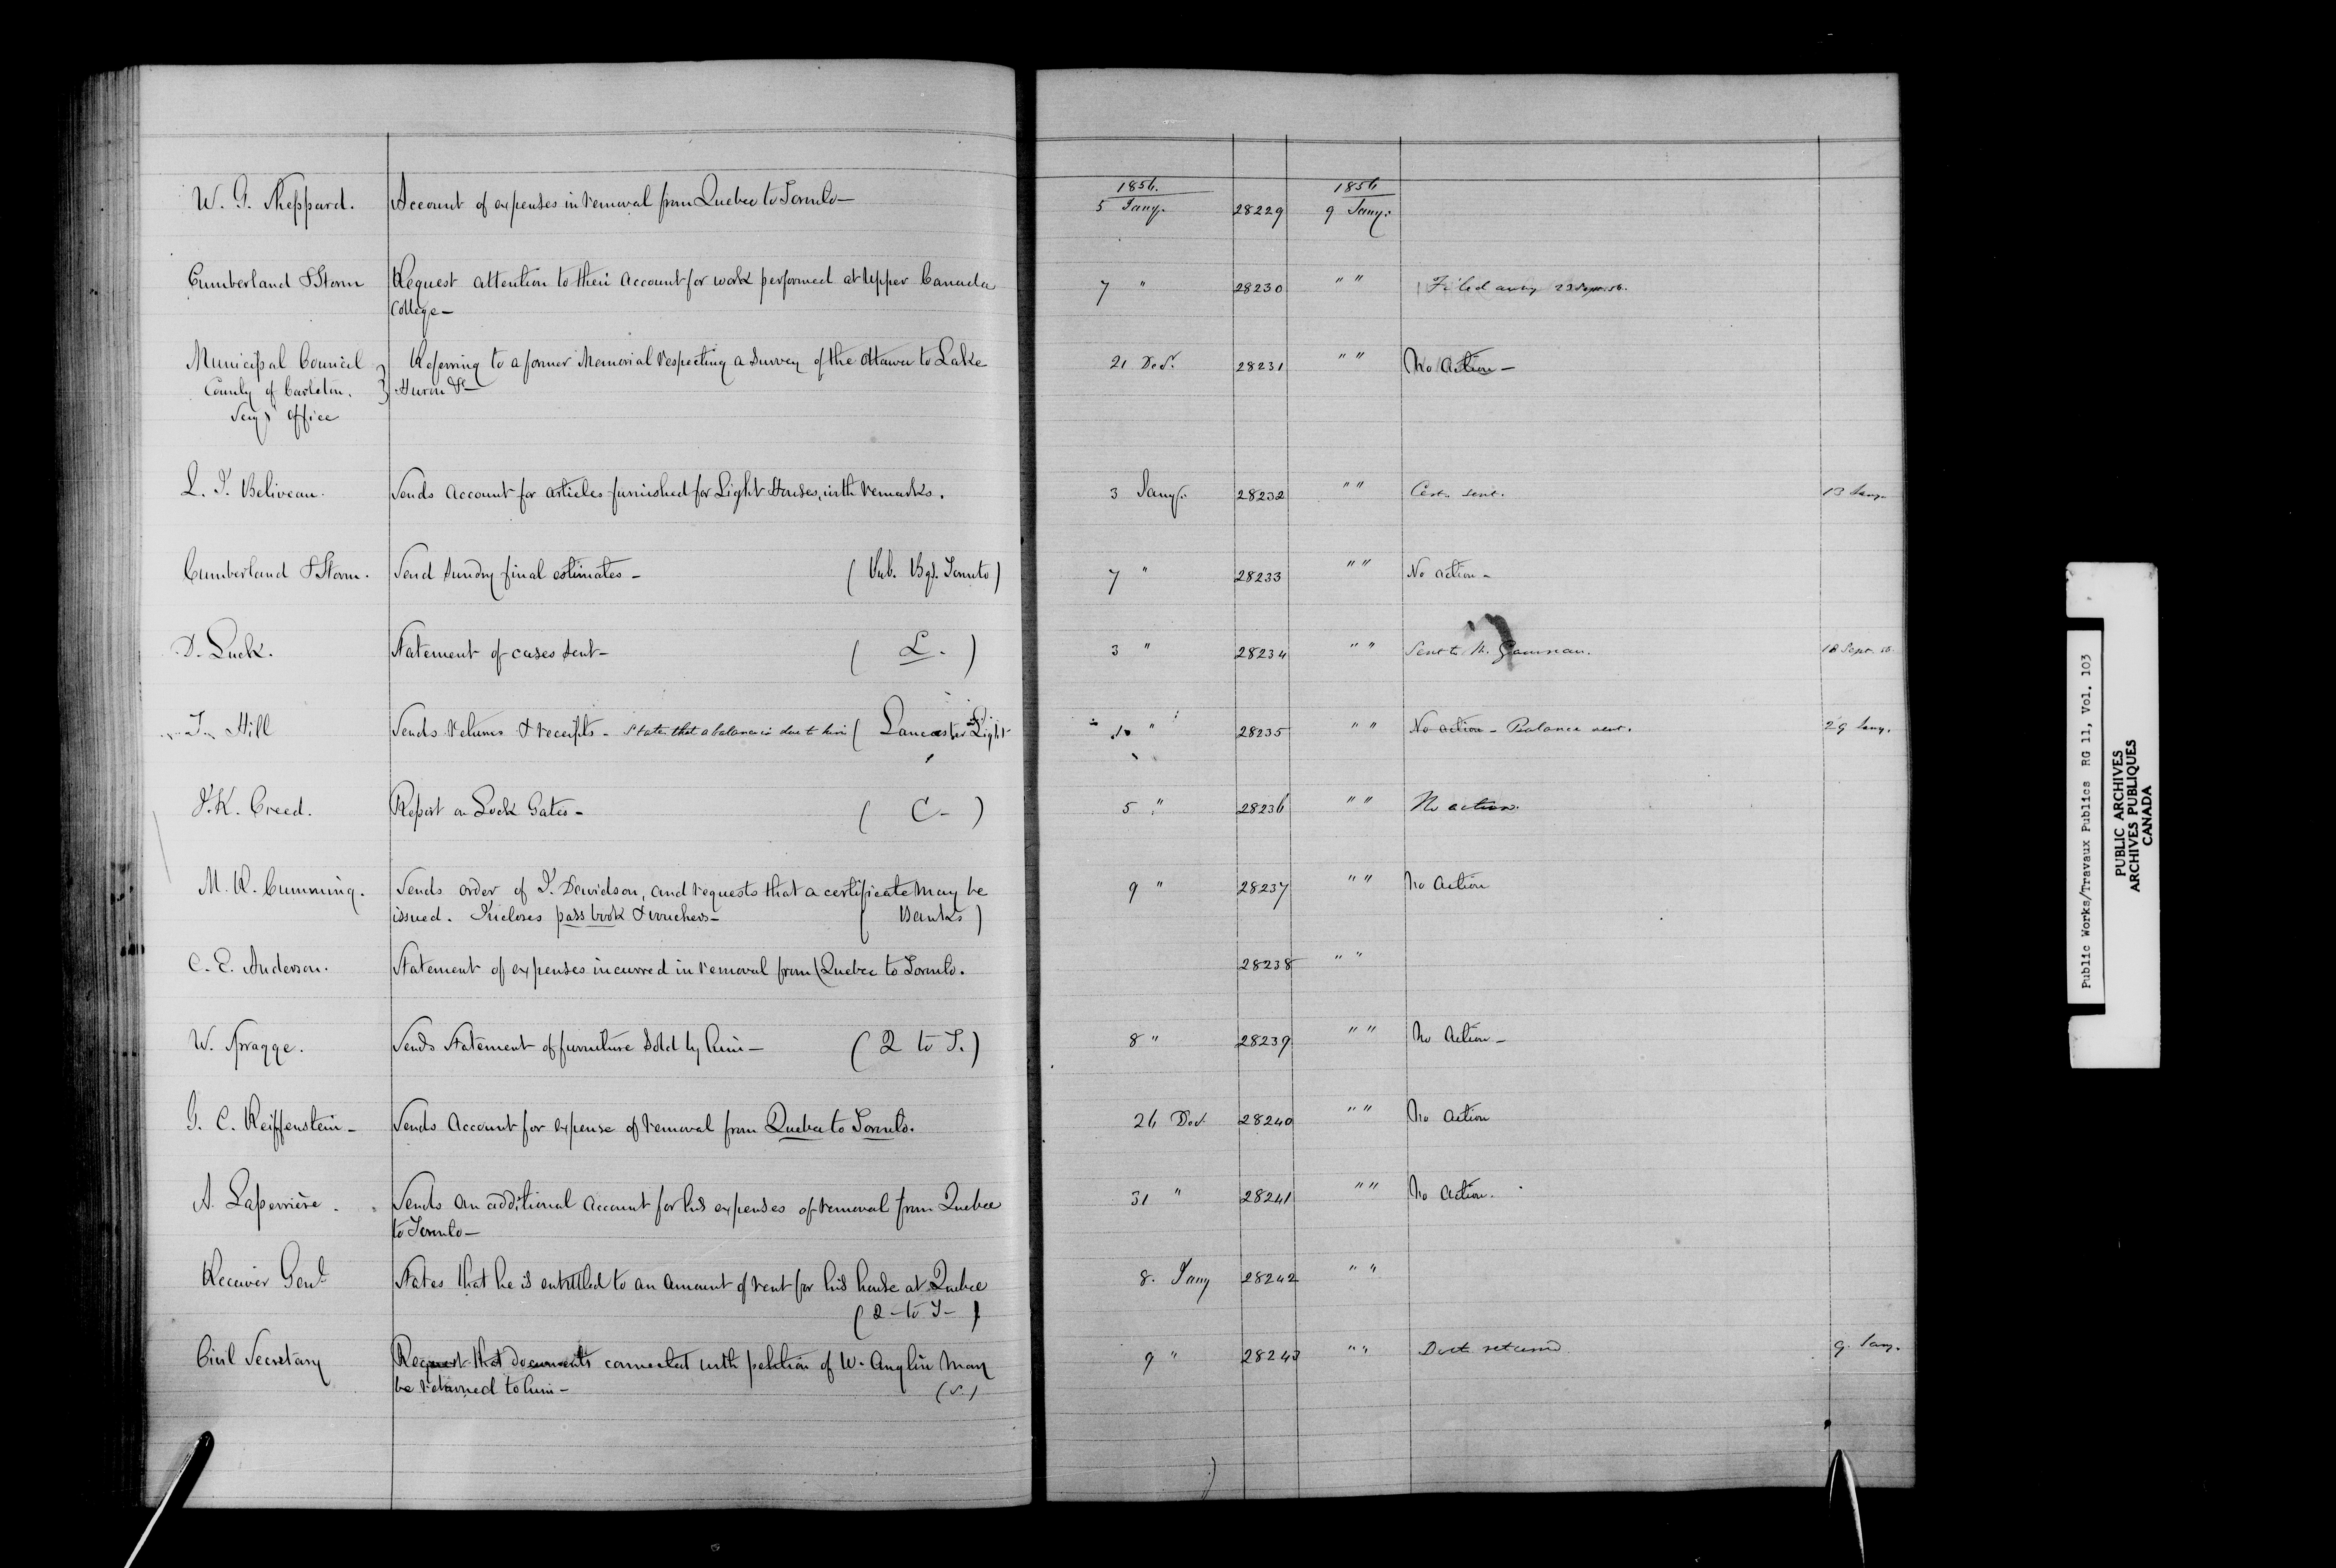 1856. 1856
W. G. Sheppard. Account of expenses in removal from Quebec to Toronto— 5 Jany. 28229 9 Jany.
Cumberland & Storm Request attention to their account for work performed at Upper Canada 7 " 28230 " " Filed away 23 Sept. 56.
College—
Municipal Council Referring to a former Memorial respecting a Survey of the Ottawa to Lake 21 Decr. 28231 " " No Action—
County of Carleton. Huron &c—
Secy's Office
L. J. Beliveau. Sends account for articles furnished for Light Houses, with remarks. 3 Jany. 28232 " " Cert. sent. 13 Jany.
Cumberland & Storm. Send Sundry final estimates— (Pub. Bgs. Toronto) 7 " 28233 " " No action—
D. Luck. Statement of cases sent— ( L. ) 3 " 28234 " " Sent to M. Gauvreau. 18 Sept. 56.
J. Hill Sends returns & receipts— States that a balance is due to him ( Lancaster Light 10 " 28235 " " No action— Balance sent. 29 Jany.
J. K. Creed. Report on Lock Gates— ( C— ) 5 " 28236 " " No action.
M. R. Cumming. Sends order of J. Davidson, and requests that a certificate may be 9 " 28237 " " No Action
issued. Incloses pass book & vouchers— ( Banks )
C. E. Anderson. Statement of expenses incurred in removal from Quebec to Toronto. 28238 " "
W. Spragge. Sends Statement of furniture sold by him— ( Q to T. ) 8 " 28239 " " No Action—
G. C. Reiffenstein— Sends Account for expense of removal from Quebec to Toronto. 26 Decr. 28240 " " No Action
A. Laperrière. Sends an additional account for his expenses of removal from Quebec 31 " 28241 " " No Action.
to Toronto—
Receiver Genl. States that he is entitled to an amount of rent for his house at Quebec 8. Jany 28242 " "
( Q—to T— )
Civil Secretary Request that documents connected with petition of W. Anglin may 9 " 28243 " " Doct. returned 9. Jany.
be returned to him— (S.)
Public Works/Travaux Publics RG 11, Vol. 103
PUBLIC ARCHIVES
ARCHIVES PUBLIQUES
CANADA